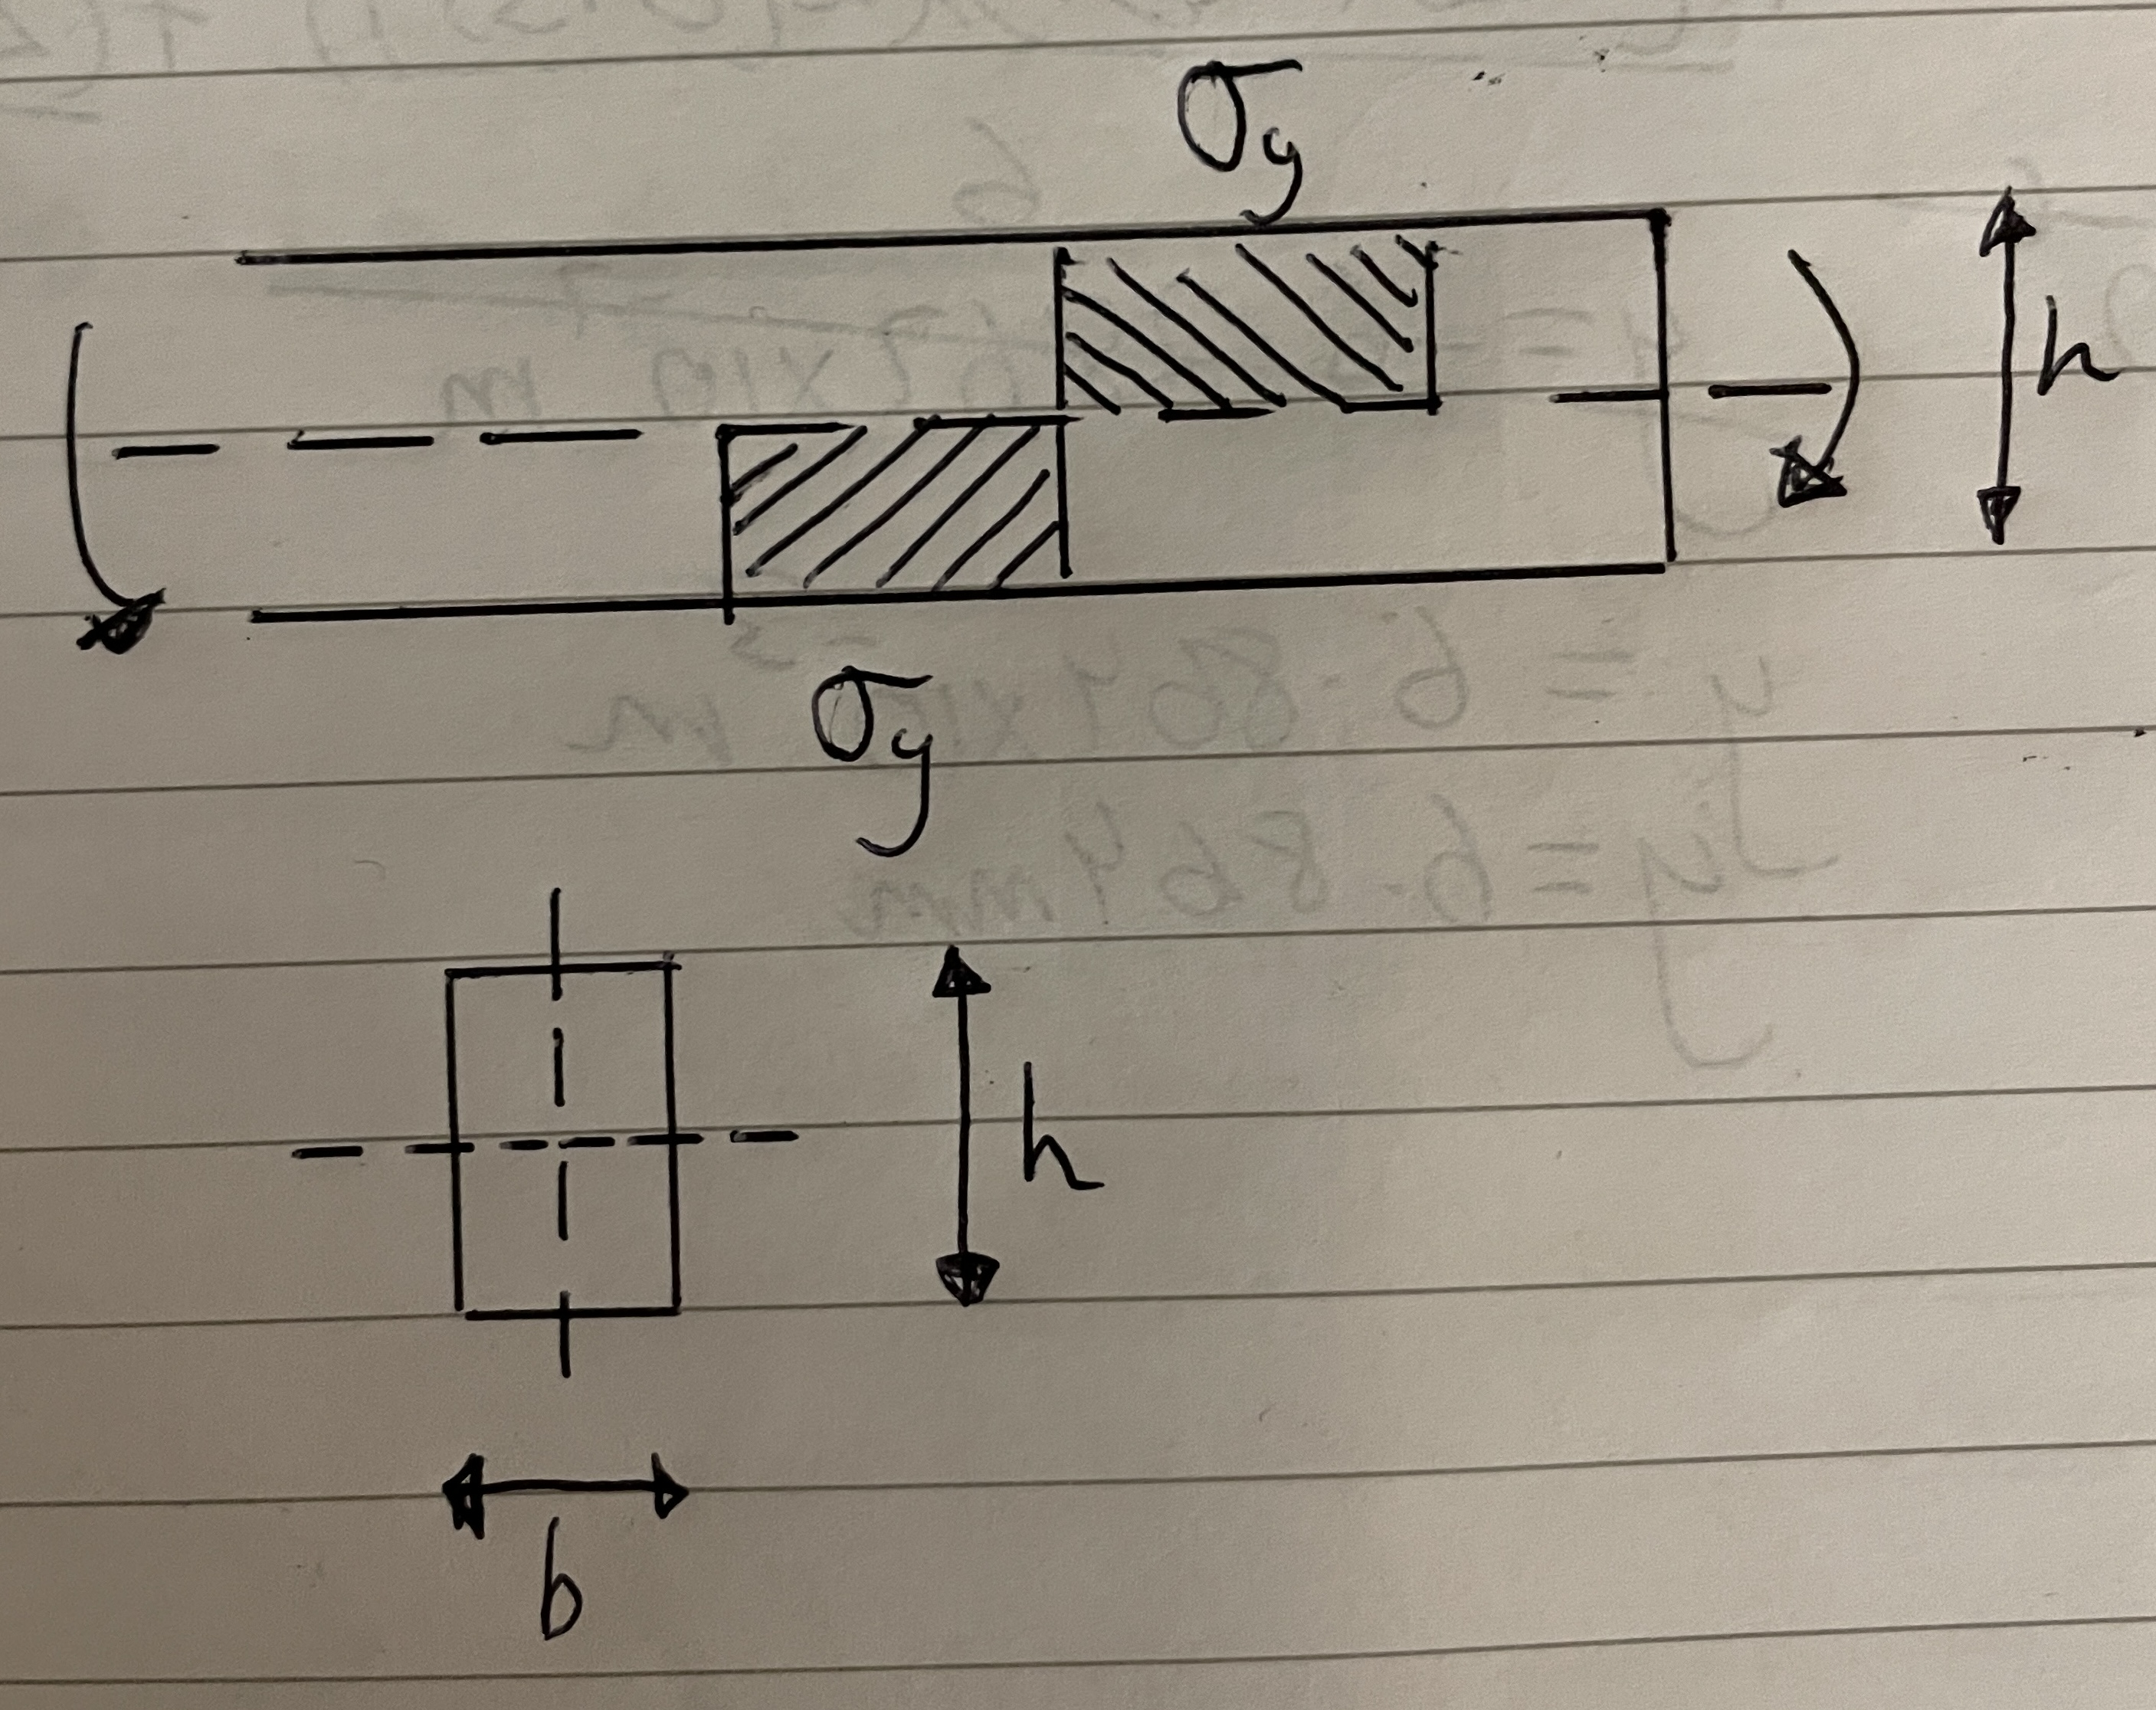 σy
h
σy
h
b